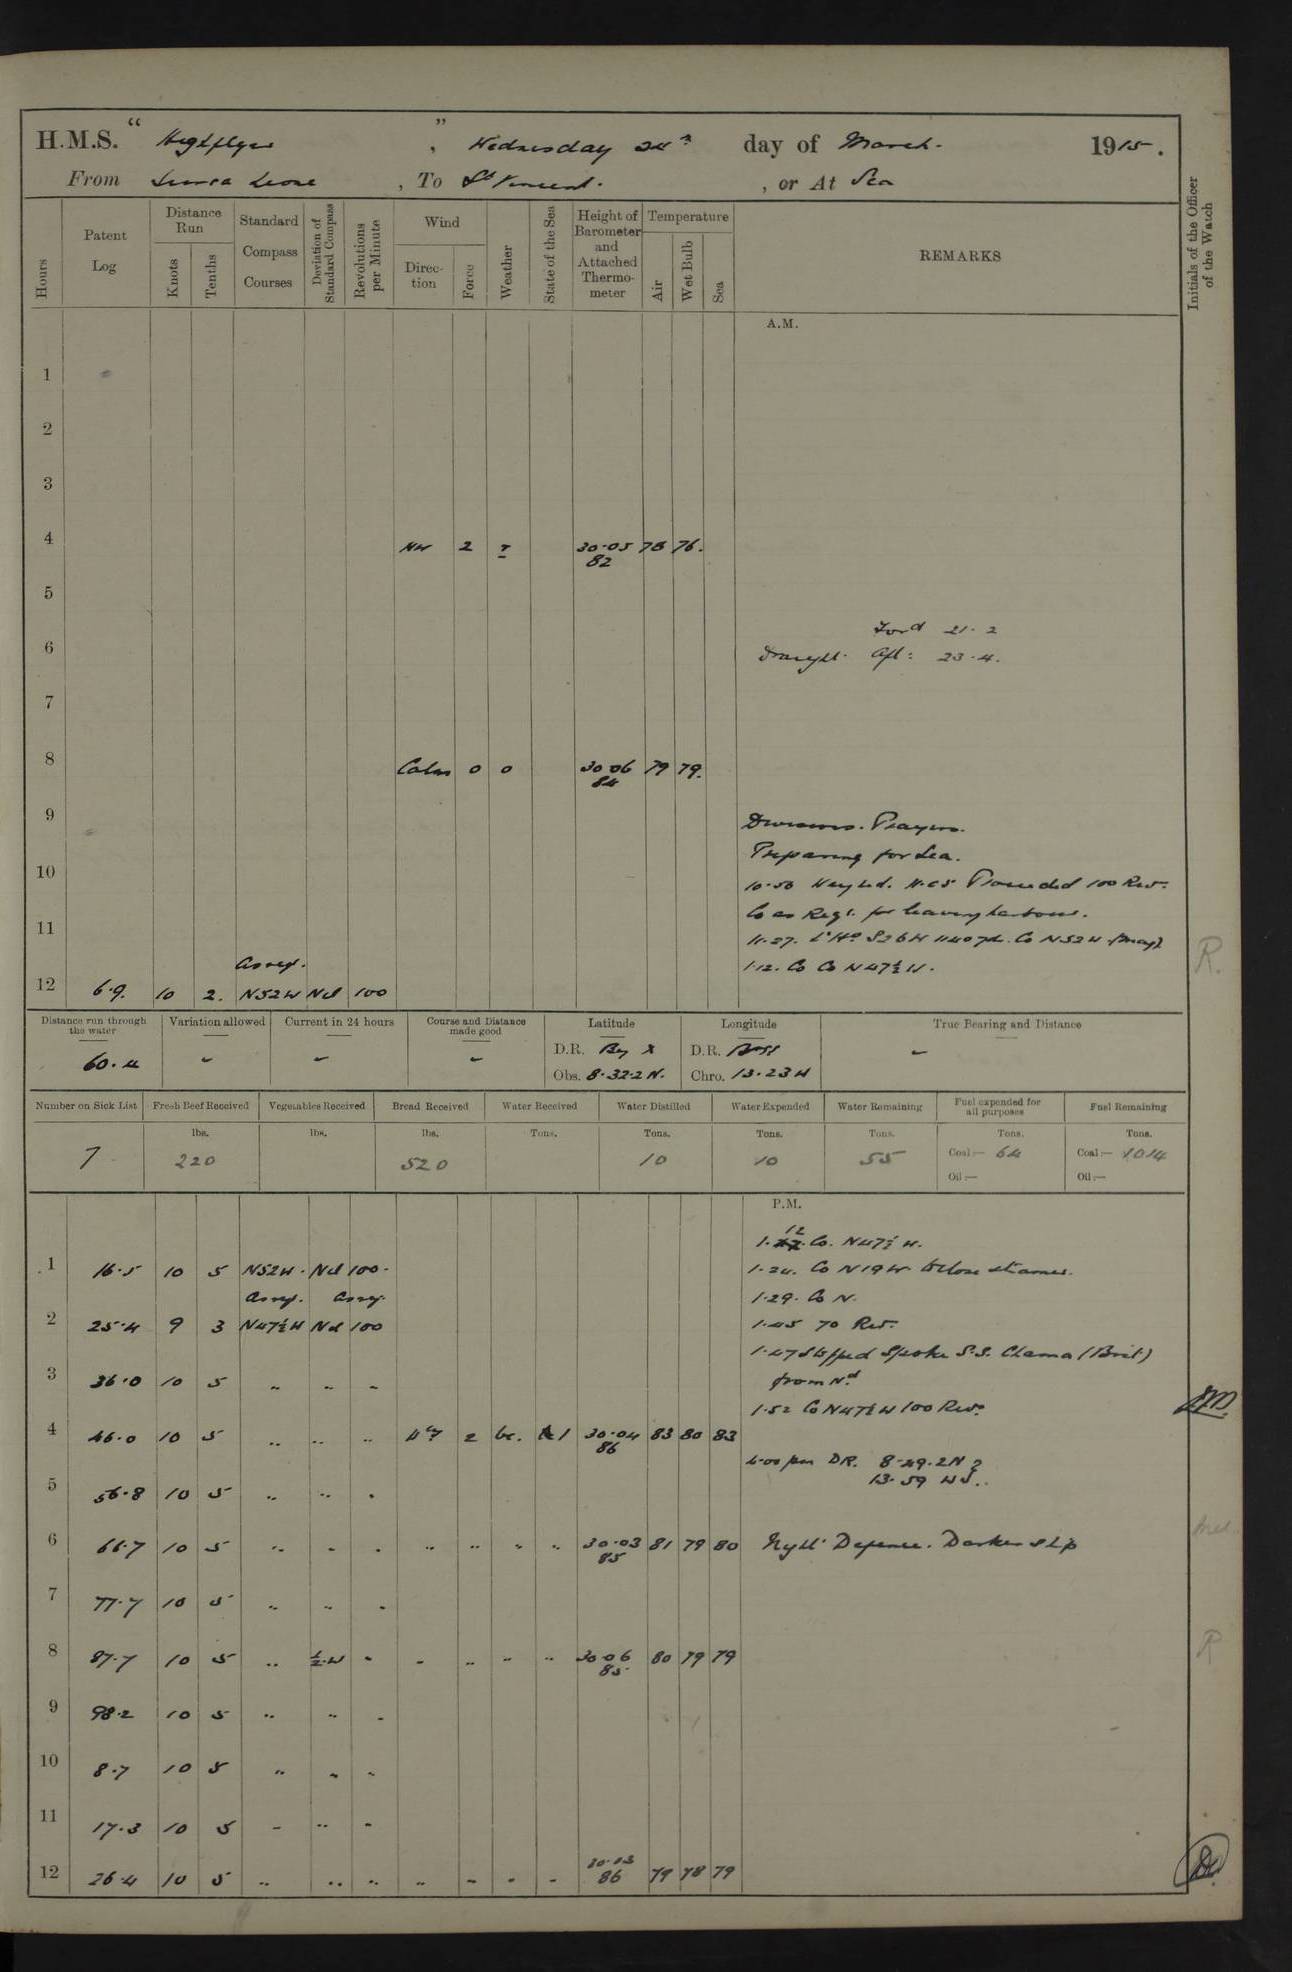 H.M.S. " Highflyer " , Wednesday 24th day of March. 1915.
From Sierra Leone , To St Vincent. , or At Sea
Hours
Patent Log
Distance Run
Knots
Tenths
Standard Compass Courses
Deviation of Standard Compass
Revolutions per Minute
Wind
Direction
Force
Weather
State of the Sea
Height of Barometer and Attached Thermometer
Temperature
Air
Wet Bulb
Sea
REMARKS
Initials of the Officer of the Watch
A.M.
1
2
3
4 NW 2 30.05 78 76.
82
5
Ford 21.2
6 Draught. Aft: 23.4.
7
8 Calm 0 0 30 06 79 79.
84
9 Divisions. Prayers.
Preparing for Sea.
10 10.50 Weighed. Proceeded 100 Rev.
Co as Reqd. for leaving harbour.
11 11.27. Co N52W
R.
Assed. 1.12. Co Co N47½W.
12 6.9. 10 2. N52W Nil 100
Distance run through the water
60.4
Variation allowed
-
Current in 24 hours
-
Course and Distance made good
-
Latitude
D.R. By X
Obs. 8.32.2 N.
Longitude
D.R.
Chro. 13.23 W
True Bearing and Distance
-
Number on Sick List
7
Fresh Beef Received
lbs.
220
Vegetables Received
lbs.
Bread Received
lbs.
520
Water Received
Tons.
Water Distilled
Tons.
10
Water Expended
Tons.
10
Water Remaining
Tons.
55
Fuel expended for all purposes
Tons.
Coal:— 64
Oil:—
Fuel Remaining
Tons.
Coal:— 1014
Oil:—
P.M.
1.12. Co. N47½ W.
1 16.5 10 5 N52W. Nil 100. 1.24. Co N19W to close steamer.
Assed. Assed. 1.29. Co N.
2 25.4 9 3 N47½W Nil 100 1.45 70 Rev.
1.47 Stopped Spoke S.S. Chama (Brit)
3 36.0 10 5 " " " from Nd
1.52 Co N47½W 100 Revs
4 46.0 10 5 " " " 2 bc. 1 30.04 83 80 83
86
4.00 pm DR. 8.49.2N
13.59 W
5 56.8 10 5 " " "
6 66.7 10 5 " " " " " " " 30.03 81 79 80 Night Defence. Darken Ship
85
7 77.7 10 5 " " "
8 87.7 10 5 " ½.W " " " " " 30.06 80 79 79
85
R
9 98.2 10 5 " " "
10 8.7 10 5 " " "
11 17.3 10 5 " " "
12 26.4 10 5 " " " " " " " 30.13 79 78 79
86